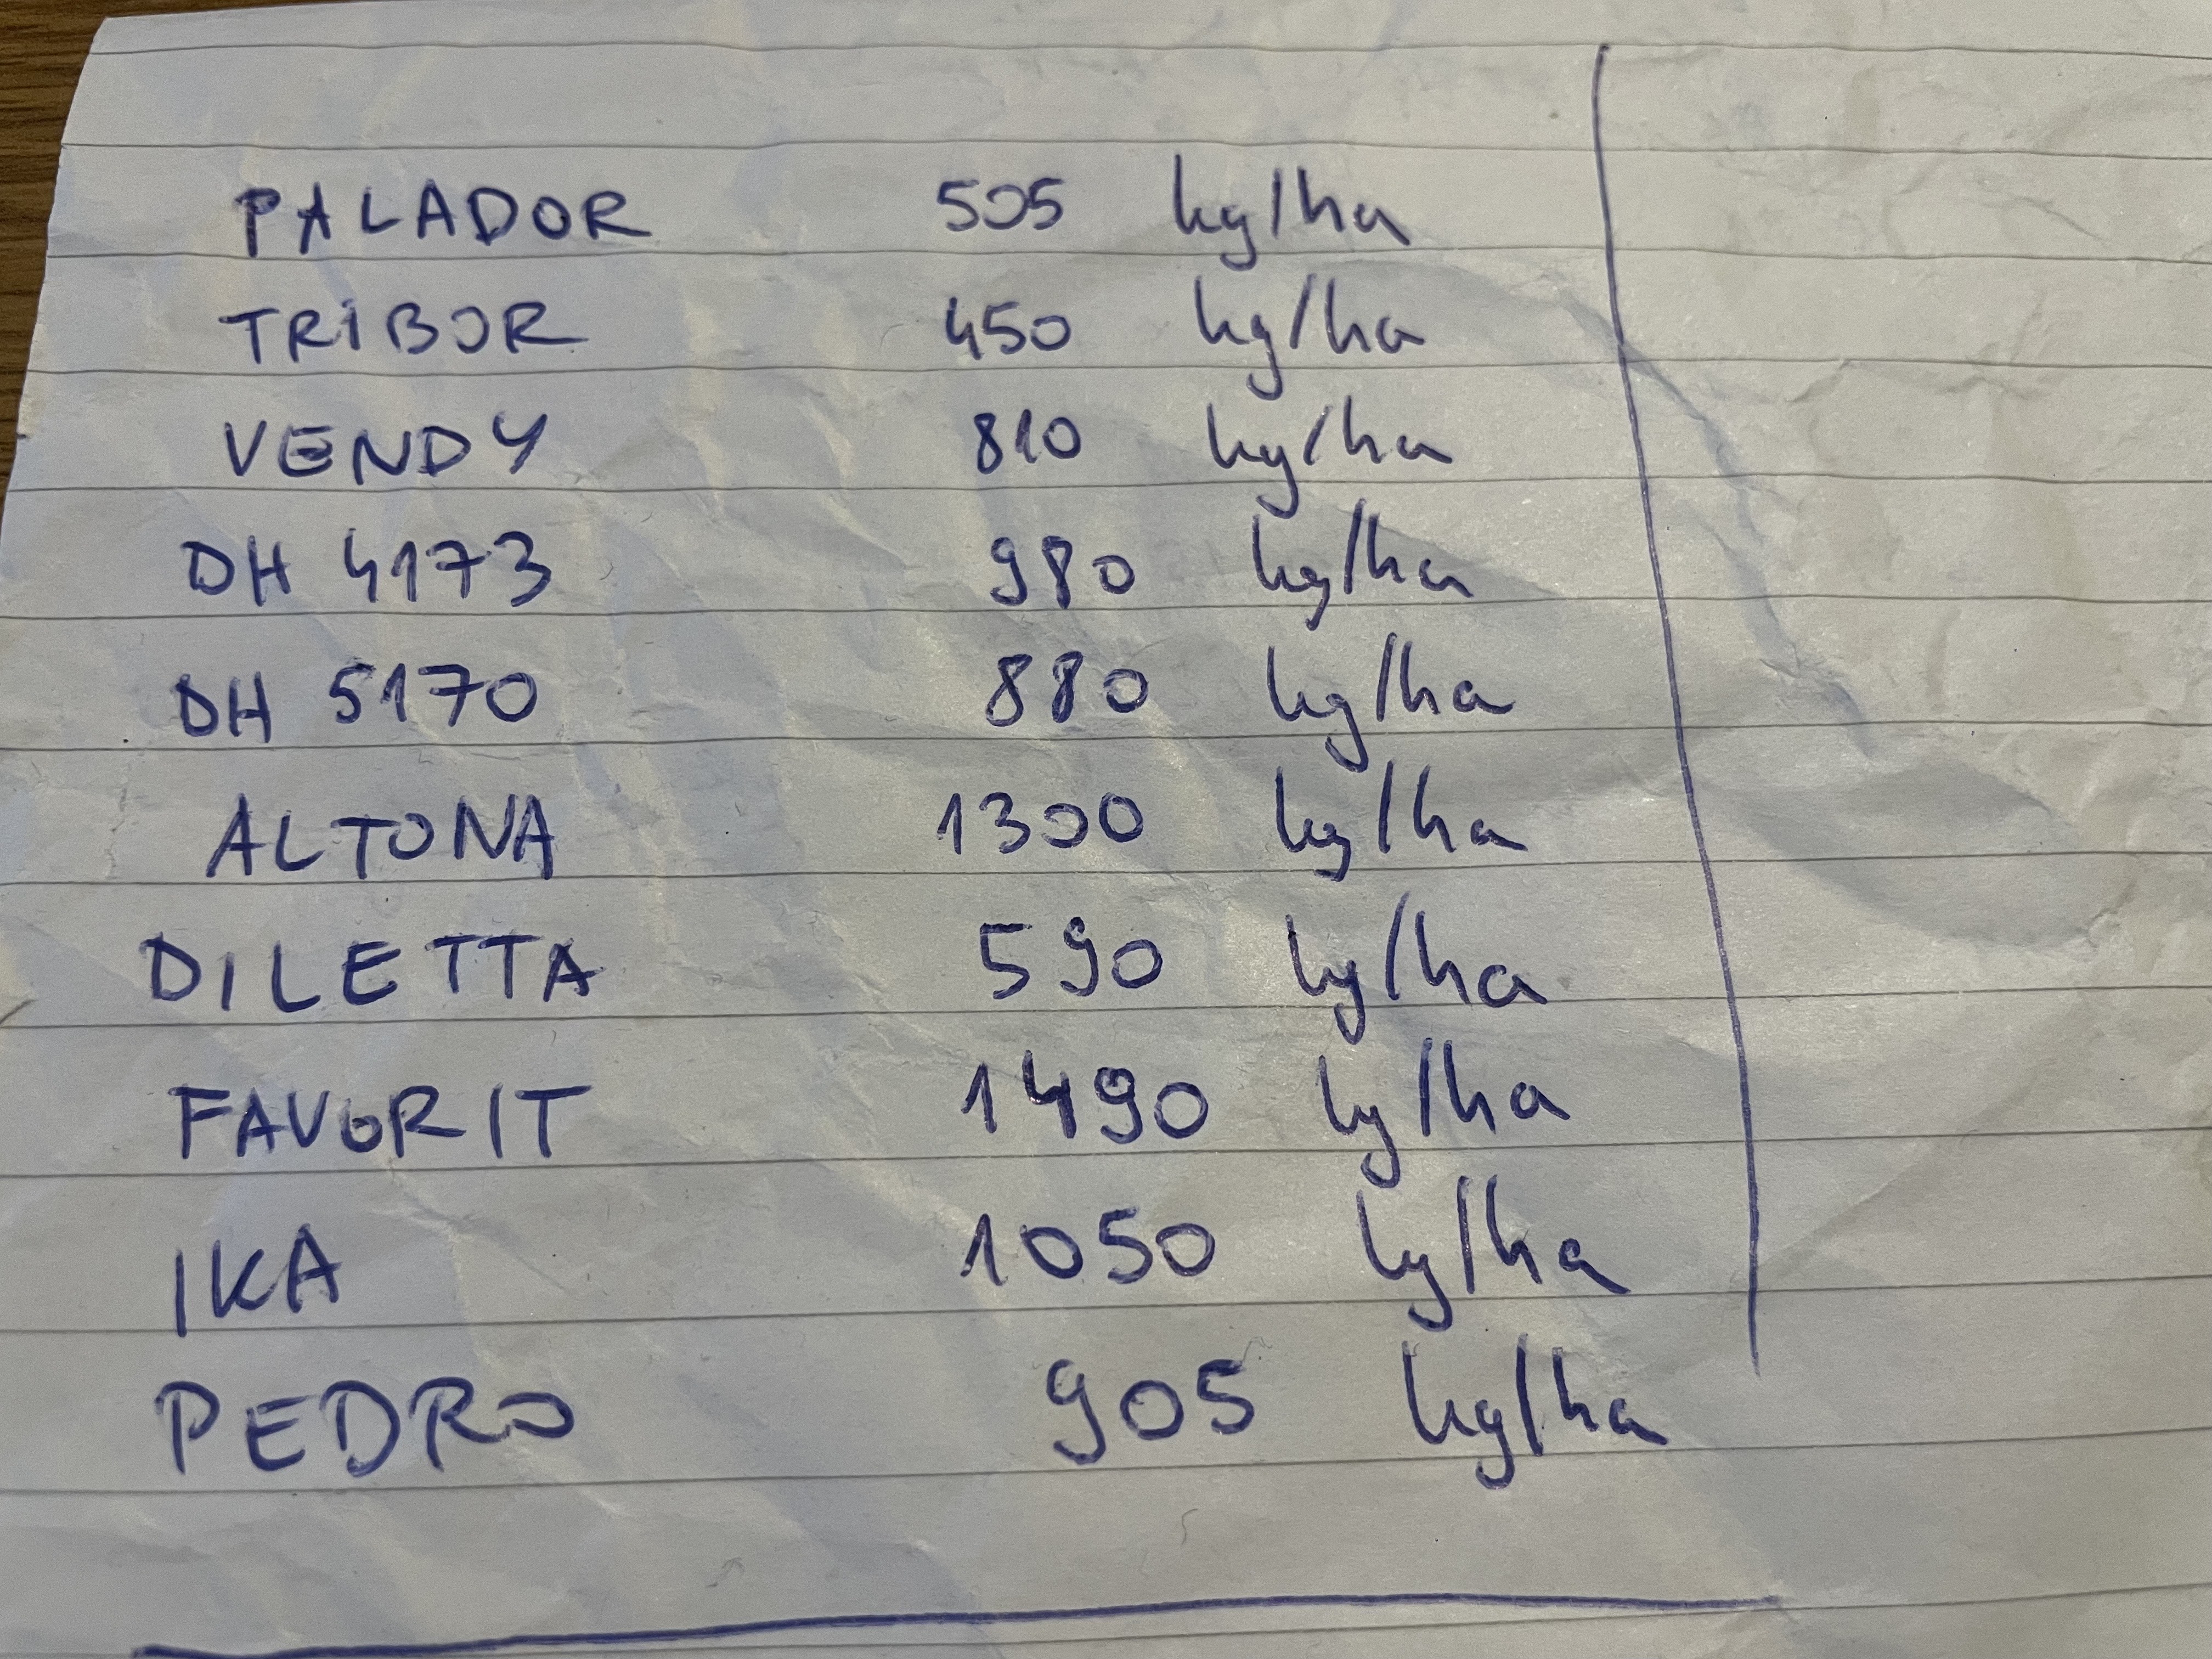 PALADOR 505 kg/ha
TRIBOR 450 kg/ha
VENDY 810 kg/ha
DH 4173 980 kg/ha
DH 5170 880 kg/ha
ALTONA 1300 kg/ha
DILETTA 590 kg/ha
FAVORIT 1490 kg/ha
IKA 1050 kg/ha
PEDRO 905 kg/ha